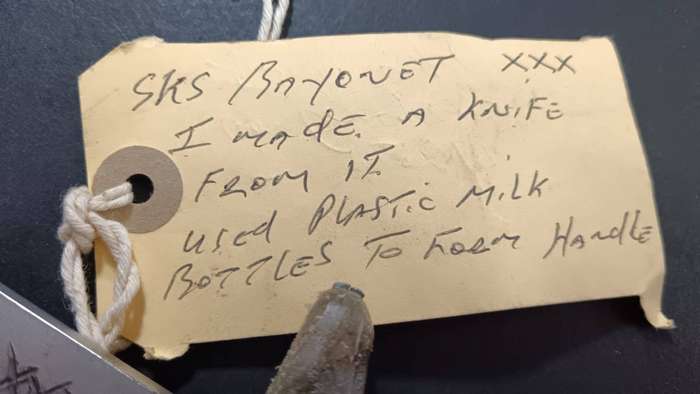 SKS BAYONET XXX
I MADE A KNIFE
FROM IT
USED PLASTIC MILK
BOTTLES TO FORM HANDLE